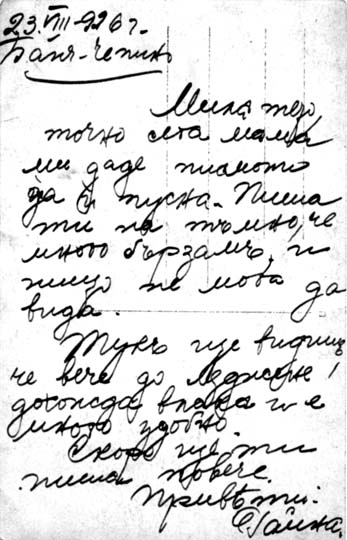 23.VIII-926г.
Баня-Чепино
Мила тезо,
точно сега мама
ми даде писмото
да ѝ пусна. Пиша
ти на тъмно, че
много бързамъ, и
нищо не мога да
видя.
Тукъ ще видишъ
че вече до
дохожда влака и е
много удобно.
Скоро ще ти
пиша повече.
Привѣти.